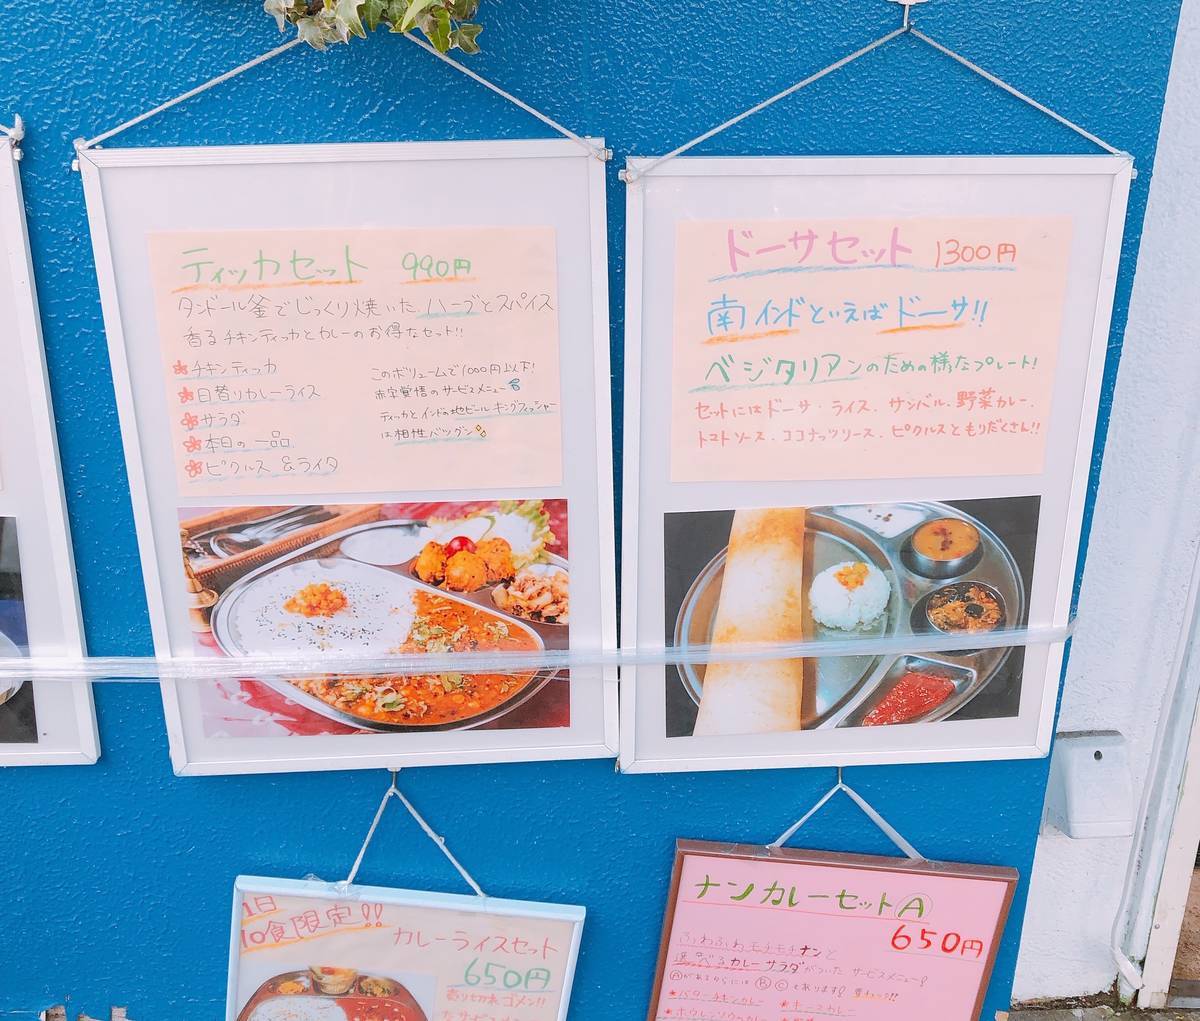 ティッカセット 990円
タンドール釜でじっくり焼いた ハーブとスパイス
香るチキンティッカとカレーのお得なセット!!
チキンティッカ
日替りカレーライス
サラダ
本日の一品
ピクルス &ライタ
このボリュームで1000円以下!
赤字覚悟のサービスメニュー
ティッカとインドの地ビール キングフィッシャー
は相性バツグン
ドーサセット 1300円
南インドといえばドーサ!!
ベジタリアンのための様なプレート!
セットにはドーサ・ライス、サンバル、野菜カレー、
トマトソース、ココナッツソース、ピクルスともりだくさん!!
1日
10食限定!!
カレーライスセット
650円
売り切れゴメン!!
ナンカレーセットⒶ
650円
ふわふわモチモチナンと
選べるカレー サラダがついた サービスメニュー!
Ⓐがあるからには Ⓑ Ⓒ とあります! 要チェック!!
★バターチキンカレー ★キーマカレー
★ホウレンソウのカレー